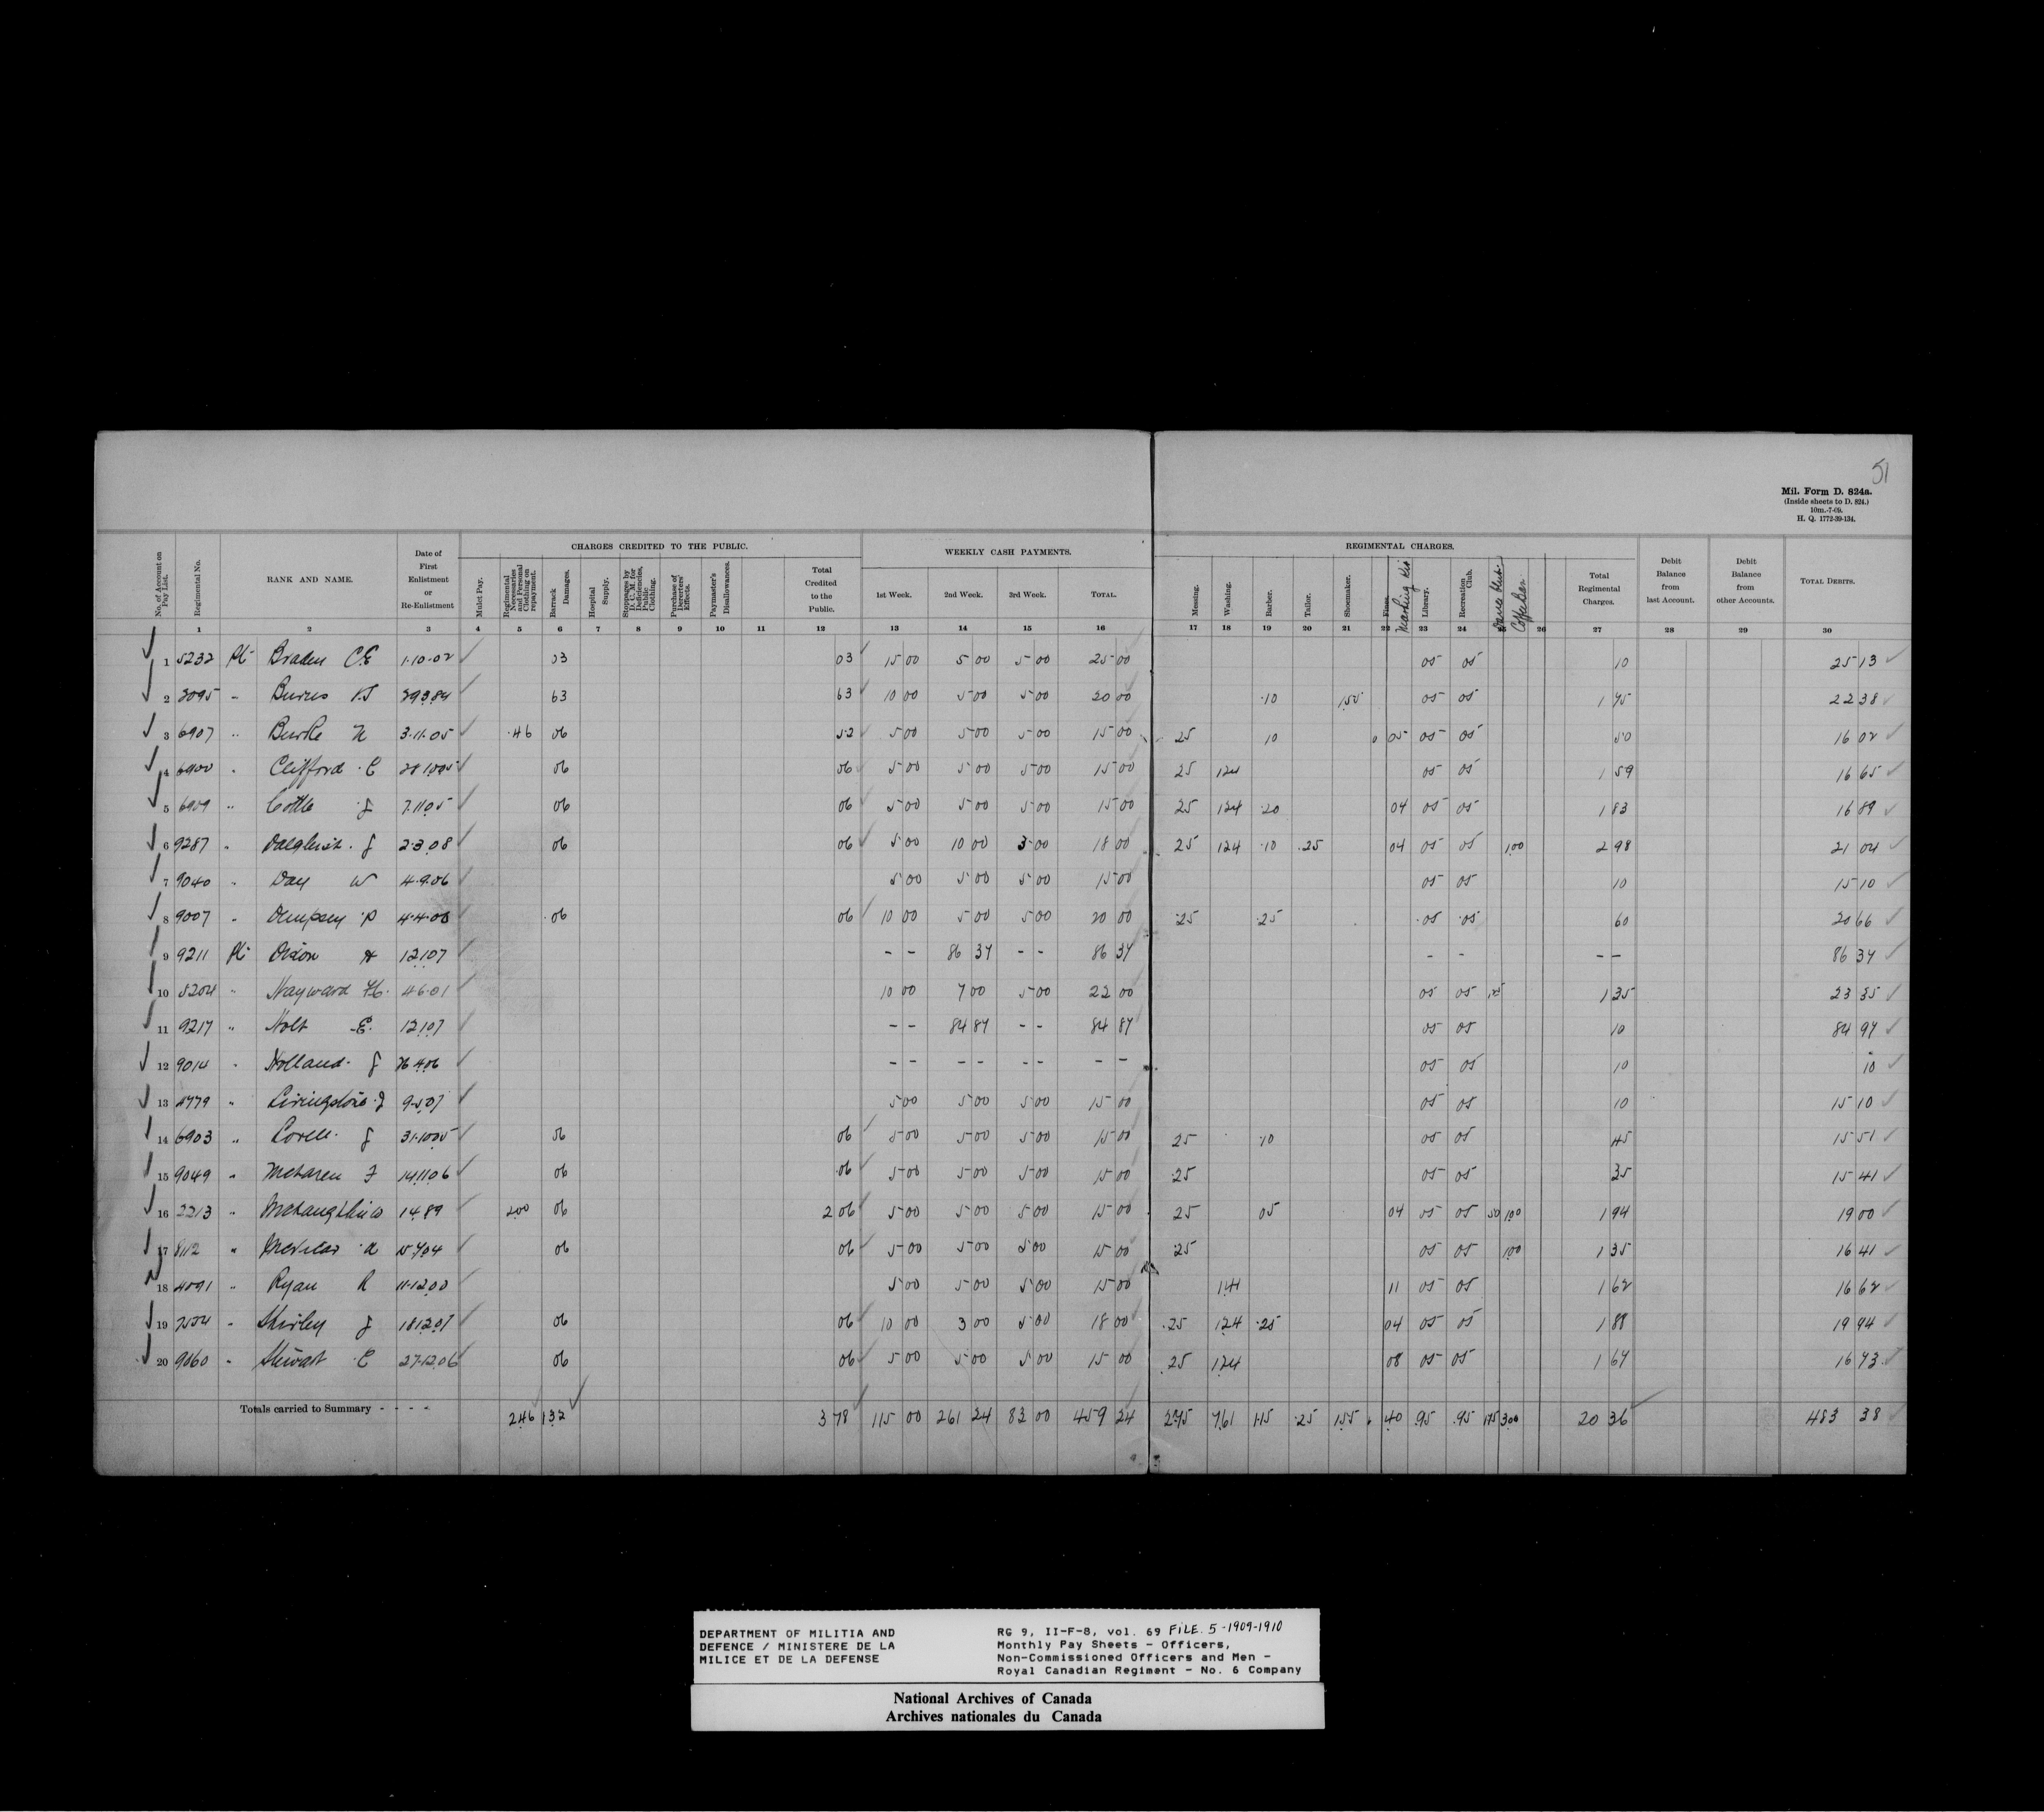 51
Mil. Form D. 824a.
(Inside sheets to D. 824.)
10m.-7-09.
H. Q. 1772-39-134.
CHARGES CREDITED TO THE PUBLIC. WEEKLY CASH PAYMENTS. REGIMENTAL CHARGES.
No. of Account on Pay List. Regimental No. RANK AND NAME. Date of First Enlistment or Re-Enlistment Mulct Pay. Regimental Necessaries and Personal Clothing on repayment. Barrack Damages. Hospital Supply. Stoppages by D. C. M. for Deficiencies, Public Clothing. Purchase of Deserters' Effects. Paymaster's Disallowances. Total Credited to the Public. 1st Week. 2nd Week. 3rd Week. TOTAL. Messing. Washing. Barber. Tailor. Shoemaker. Fines. Marking Kit Library. Recreation Club. Coffee Bar. Total Regimental Charges. Debit Balance from last Account. Debit Balance from other Accounts. TOTAL DEBITS.
1 2 3 4 5 6 7 8 9 10 11 12 13 14 15 16 17 18 19 20 21 22 23 24 25 26 27 28 29 30
1 5232 Pte Braden C.E 1.10.02 03 03 15 00 5 00 5 00 25 00 05 05 10 25 13
2 3095 " Burns 29.3.84 63 63 10 00 5 00 5 00 20 00 .10 1.55 05 05 1 75 22 38
3 6907 " Burke N 3.11.05 .46 06 52 5 00 5 00 5 00 15 00 25 10 05 05 05 50 16 02
4 6900 " Clifford C 28.10.05 06 06 5 00 5 00 5 00 15 00 25 1.24 05 05 1 59 16 65
5 6909 " Cottle J 7.11.05 06 06 5 00 5 00 5 00 15 00 25 1.24 .20 04 05 05 1 83 16 89
6 9287 " Dalgleish J 2.3.08 06 06 5 00 10 00 3 00 18 00 25 1.24 .10 .25 04 05 05 1.00 2 98 21 04
7 9040 " Day W 4.9.06 5 00 5 00 5 00 15 00 05 05 10 15 10
8 9007 " Dempsey P 4.4.06 .06 06 10 00 5 00 5 00 20 00 .25 .25 .05 .05 60 20 66
9 9211 Pte Dixon H 1.2.1.07 - - 86 37 - - 86 37 - - - - 86 37
10 5204 " Hayward 4.6.01 10 00 7 00 5 00 22 00 05 05 1.25 1 35 23 35
11 9217 " Holt E. 1.2.1.07 - - 84 87 - - 84 87 05 05 10 84 97
12 9014 " Holland J 26.4.06 - - - - - - - - 05 05 10 10
13 4779 " Livingstone J 9.5.07 5 00 5 00 5 00 15 00 05 05 10 15 10
14 6903 " Lovell J 31.10.05 06 06 5 00 5 00 5 00 15 00 25 .10 05 05 45 15 51
15 9049 " McLaren F 14.11.06 06 .06 5 00 5 00 5 00 15 00 .25 05 05 35 15 41
16 2213 " McLaughlin W 1.4.89 2.00 06 2 06 5 00 5 00 5 00 15 00 25 05 04 05 05 50 1.00 1 94 19 00
17 8112 " 15.7.04 06 06 5 00 5 00 5 00 15 00 .25 05 05 1.00 1 35 16 41
18 4091 " Ryan R 11.12.00 5 00 5 00 5 00 15 00 1.41 11 05 05 1 62 16 62
19 " Shirley J 18.12.07 06 06 10 00 3 00 5 00 18 00 .25 1.24 .25 04 05 05 1 88 19 94
20 9060 " Stewart C 27.12.06 06 06 5 00 5 00 5 00 15 00 .25 1.24 08 05 05 1 67 16 73
Totals carried to Summary - - - - 2.46 1.32 3 78 115 00 261 24 83 00 459 24 2.75 7.61 1.15 .25 1.55 .40 .95 .95 1.75 3.00 20 36 483 38
DEPARTMENT OF MILITIA AND
DEFENCE / MINISTERE DE LA
MILICE ET DE LA DEFENSE
RG 9, II-F-8, vol. 69 FILE. 5-1909-1910
Monthly Pay Sheets - Officers,
Non-Commissioned Officers and Men -
Royal Canadian Regiment - No. 6 Company
National Archives of Canada
Archives nationales du Canada